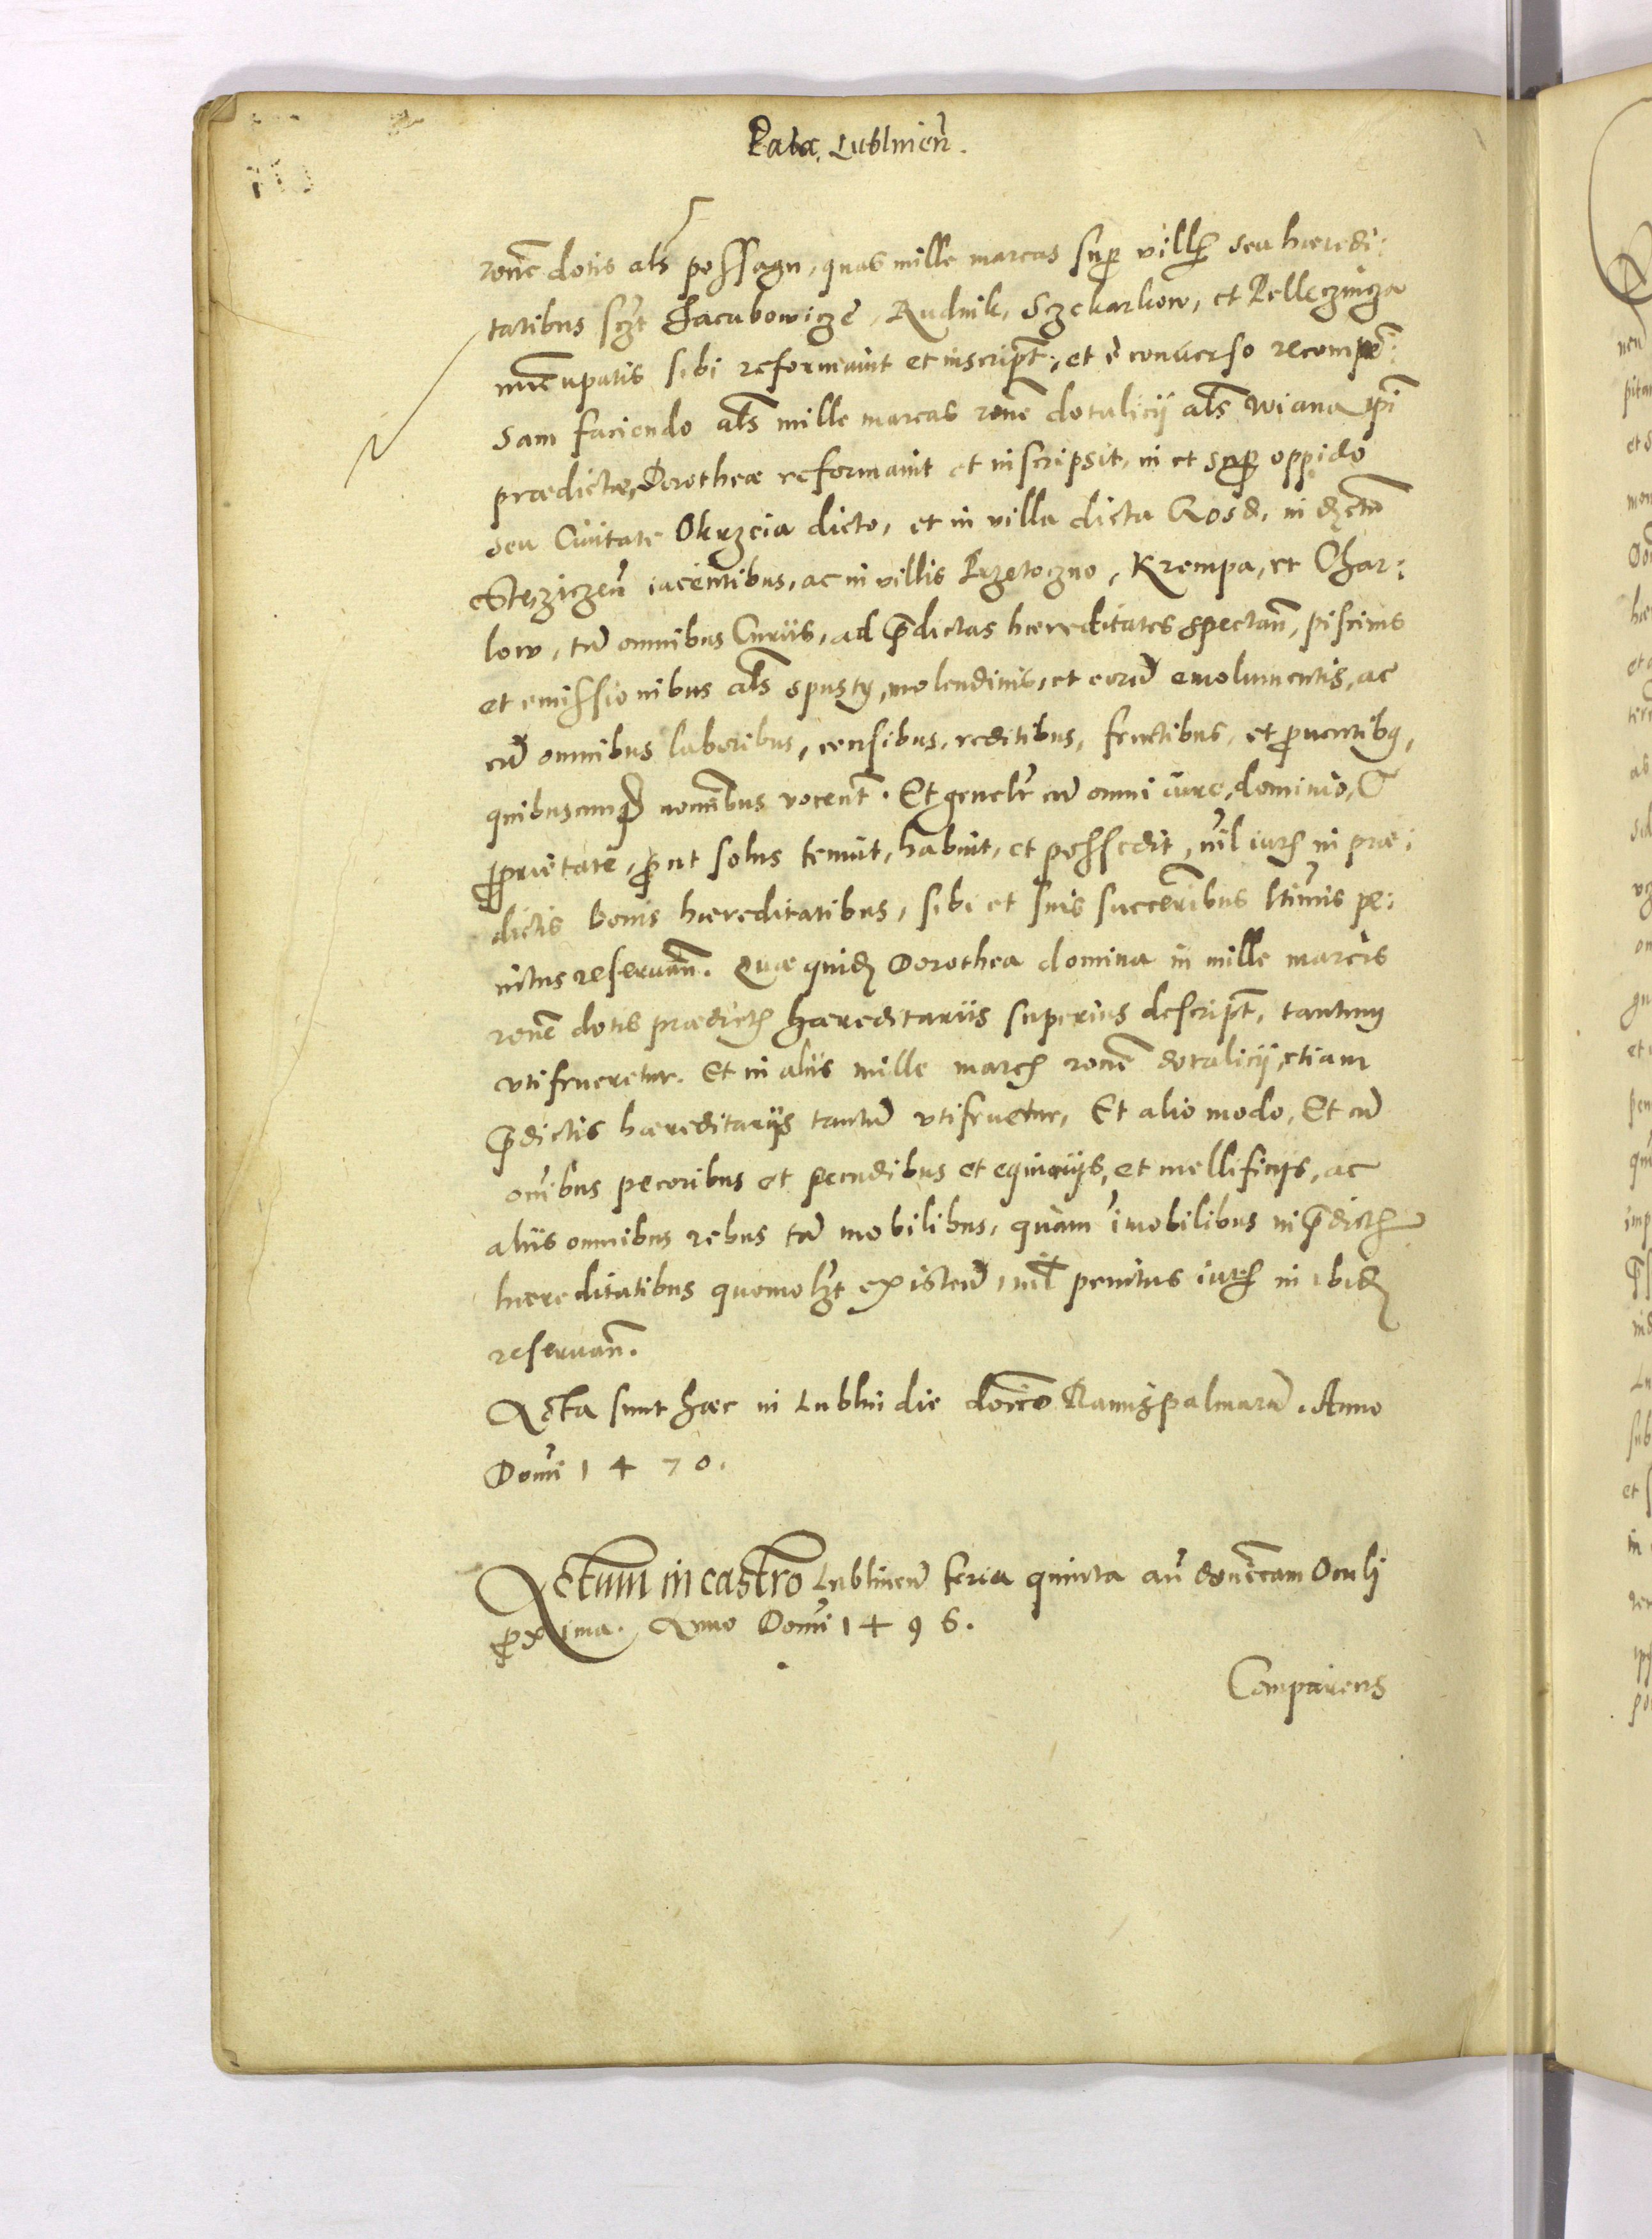 Pała. Lublinen̄.
rōne dotis als possagu, quas mille marcas sup villis seu hæredi:
tatibus scz̄t Jacubowicze, Rudnik, Sczekarkow, et Pelleczincza
nuncupatis sibi reformauit et inscript:, et è conuerso recompē:
sam faciendo als mille marcas rōne dotalicij als Wiana ipi
prædictæ Dorotheæ reformauit et inscripsit, in et sup oppido
seu Ciuitate Okrzeia dicto, et in villa dicta Gosd, in dz̄ctu
Stęzyczen̄ iacentibus, ac in villis Przetoczno, Krempa, et Char:
low, cū omnibus Curiis, ad p̄dictas hæreditates spectan̄, piscinis
et emissionibus als spusty, molendinis, et eorū emolumentis, ac
cū omnibus laboribus, censibus, reditibus, fructibus, et prouentibȝ,
quibuscunq̄ nominibus vocent. Et genelr̄ cū omni iure, dominio, &
proprietate, prout solus tenuit, habuit, et possedit, nil iuris in præ:
dictis bonis hæreditatibus, sibi et suis succēribus ltimis pe:
nitus reseruan̄. Quæ quidȝ Dorothea domina in mille marcis
rōne dotis prædictis hæreditariis superius descript, tantum
vtifrueretur. Et in aliis mille marcis rōne dotalicij, etiam
p̄dictis hæreditarijs tantū vtifruetur, Et alio modo, Et cū
omibus pecoribus et pecudibus et equiciis, et mellificijs, ac
aliis omnibus rebus tā mobilibus, quàm imobilibus in p̄dictis
hæreditatibus quomolz̄t existen̄, nil penitus iuris in ibidȝ
reseruan̄.
Acta sunt hæc in Lublin die dōico Ramispalmarū. Anno
Domi 1470.
Actum in castro Lublinen̄ feria quinta an̄ dominicam Oculi
proxima. Anno Domi 1496.
Comparens